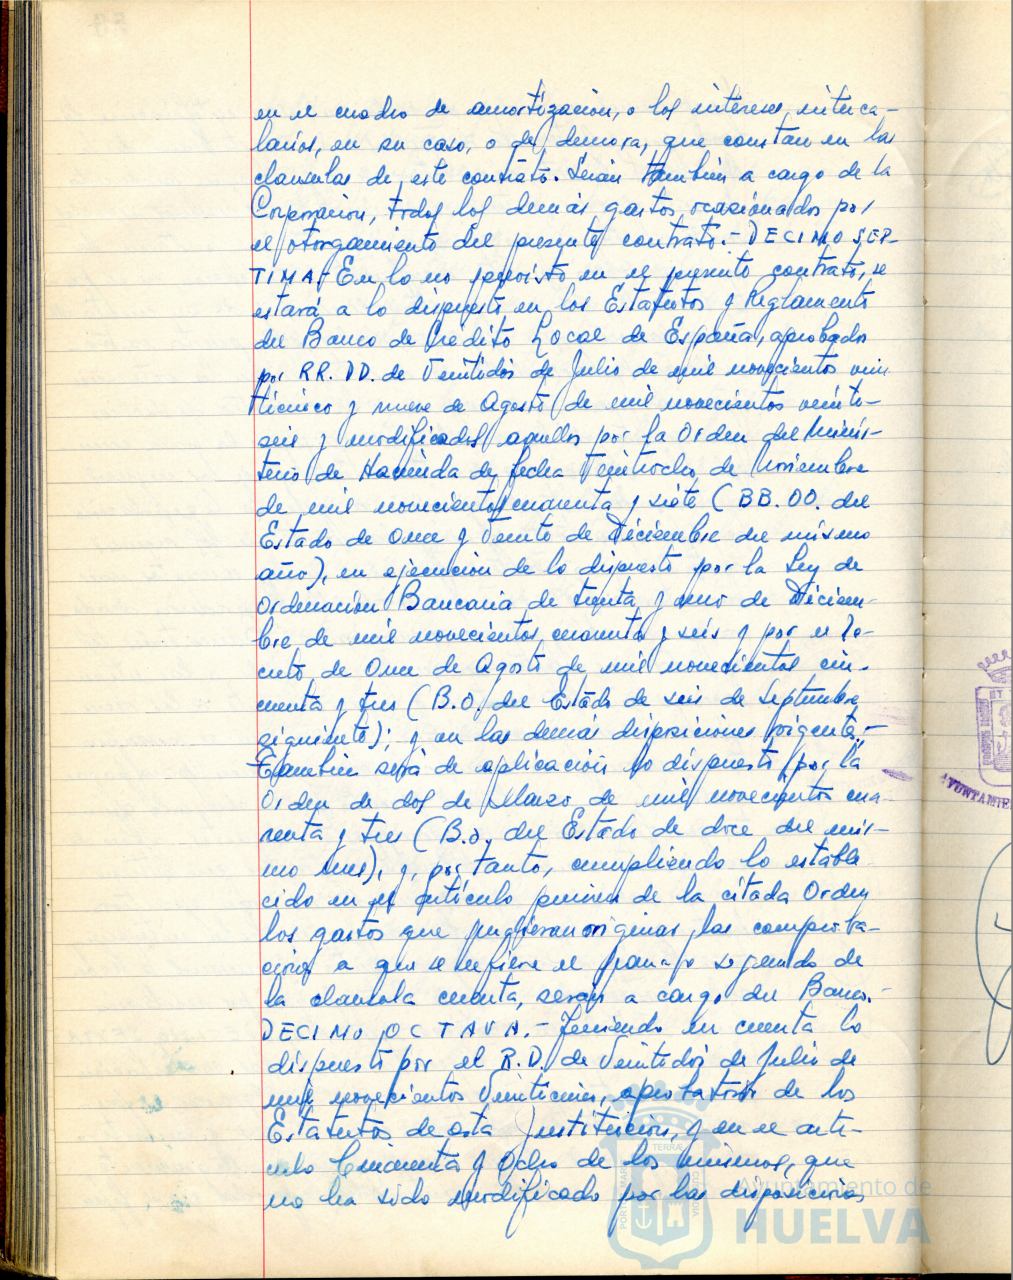 en el cuadro de amortización, o los intereses interca-
larios, en su caso, o de demora, que constan en las
clausulas de este contrato. Serán también a cargo de la
Corporación, todos los demás gastos ocasionados por
el otorgamiento del presente contrato.- DECIMO SEP-
TIMA. En lo no previsto en el presente contrato, se
estará a lo dispuesto en los Estatutos y Reglamento
del Banco de Credito Local de España, aprobados
por RR. DD. de Veintidos de Julio de mil novecientos vein
ticinco y nueve de Agosto de mil novecientos veinti-
seis y modificados aquellos por la Orden del Minis-
terio de Hacienda de fecha Veintiocho de Noviembre
de mil novecientos cuarenta y siete (BB. OO. del
Estado de Once y Veinte de Diciembre del mismo
año), en ejecución de lo dispuesto por la Ley de
Ordenación Bancaria de treinta y uno de Diciem-
bre de mil novecientos cuarenta y seis y por el De-
creto de Once de Agosto de mil novecientos cin-
cuenta y tres (B.O. del Estado de seis de Septiembre
siguiente); y en las demás disposiciones vigentes.-
También será de aplicación lo dispuesto por la
Orden de dos de Marzo de mil novecientos cua
renta y tres (B.O. del Estado de doce del mis-
mo mes), y, por tanto, cumpliendo lo estable-
cido en el artículo primero de la citada Orden
los gastos que pudieran originar las comproba-
ciones a que se refiere el parrafo segundo de
la clausula cuarta, serán a cargo del Banco.-
DECIMO OCTAVA.- Teniendo en cuenta lo
dispuesto por el R.D. de Veintidos de Julio de
mil novecientos Veinticinco, aprobatorio de los
Estatutos de esta Institución, y en el artí-
culo Cincuenta y Ocho de los mismos, que
no ha sido modificado por las disposiciones
AYUNTAMIE
Ayuntamiento de
HUELVA